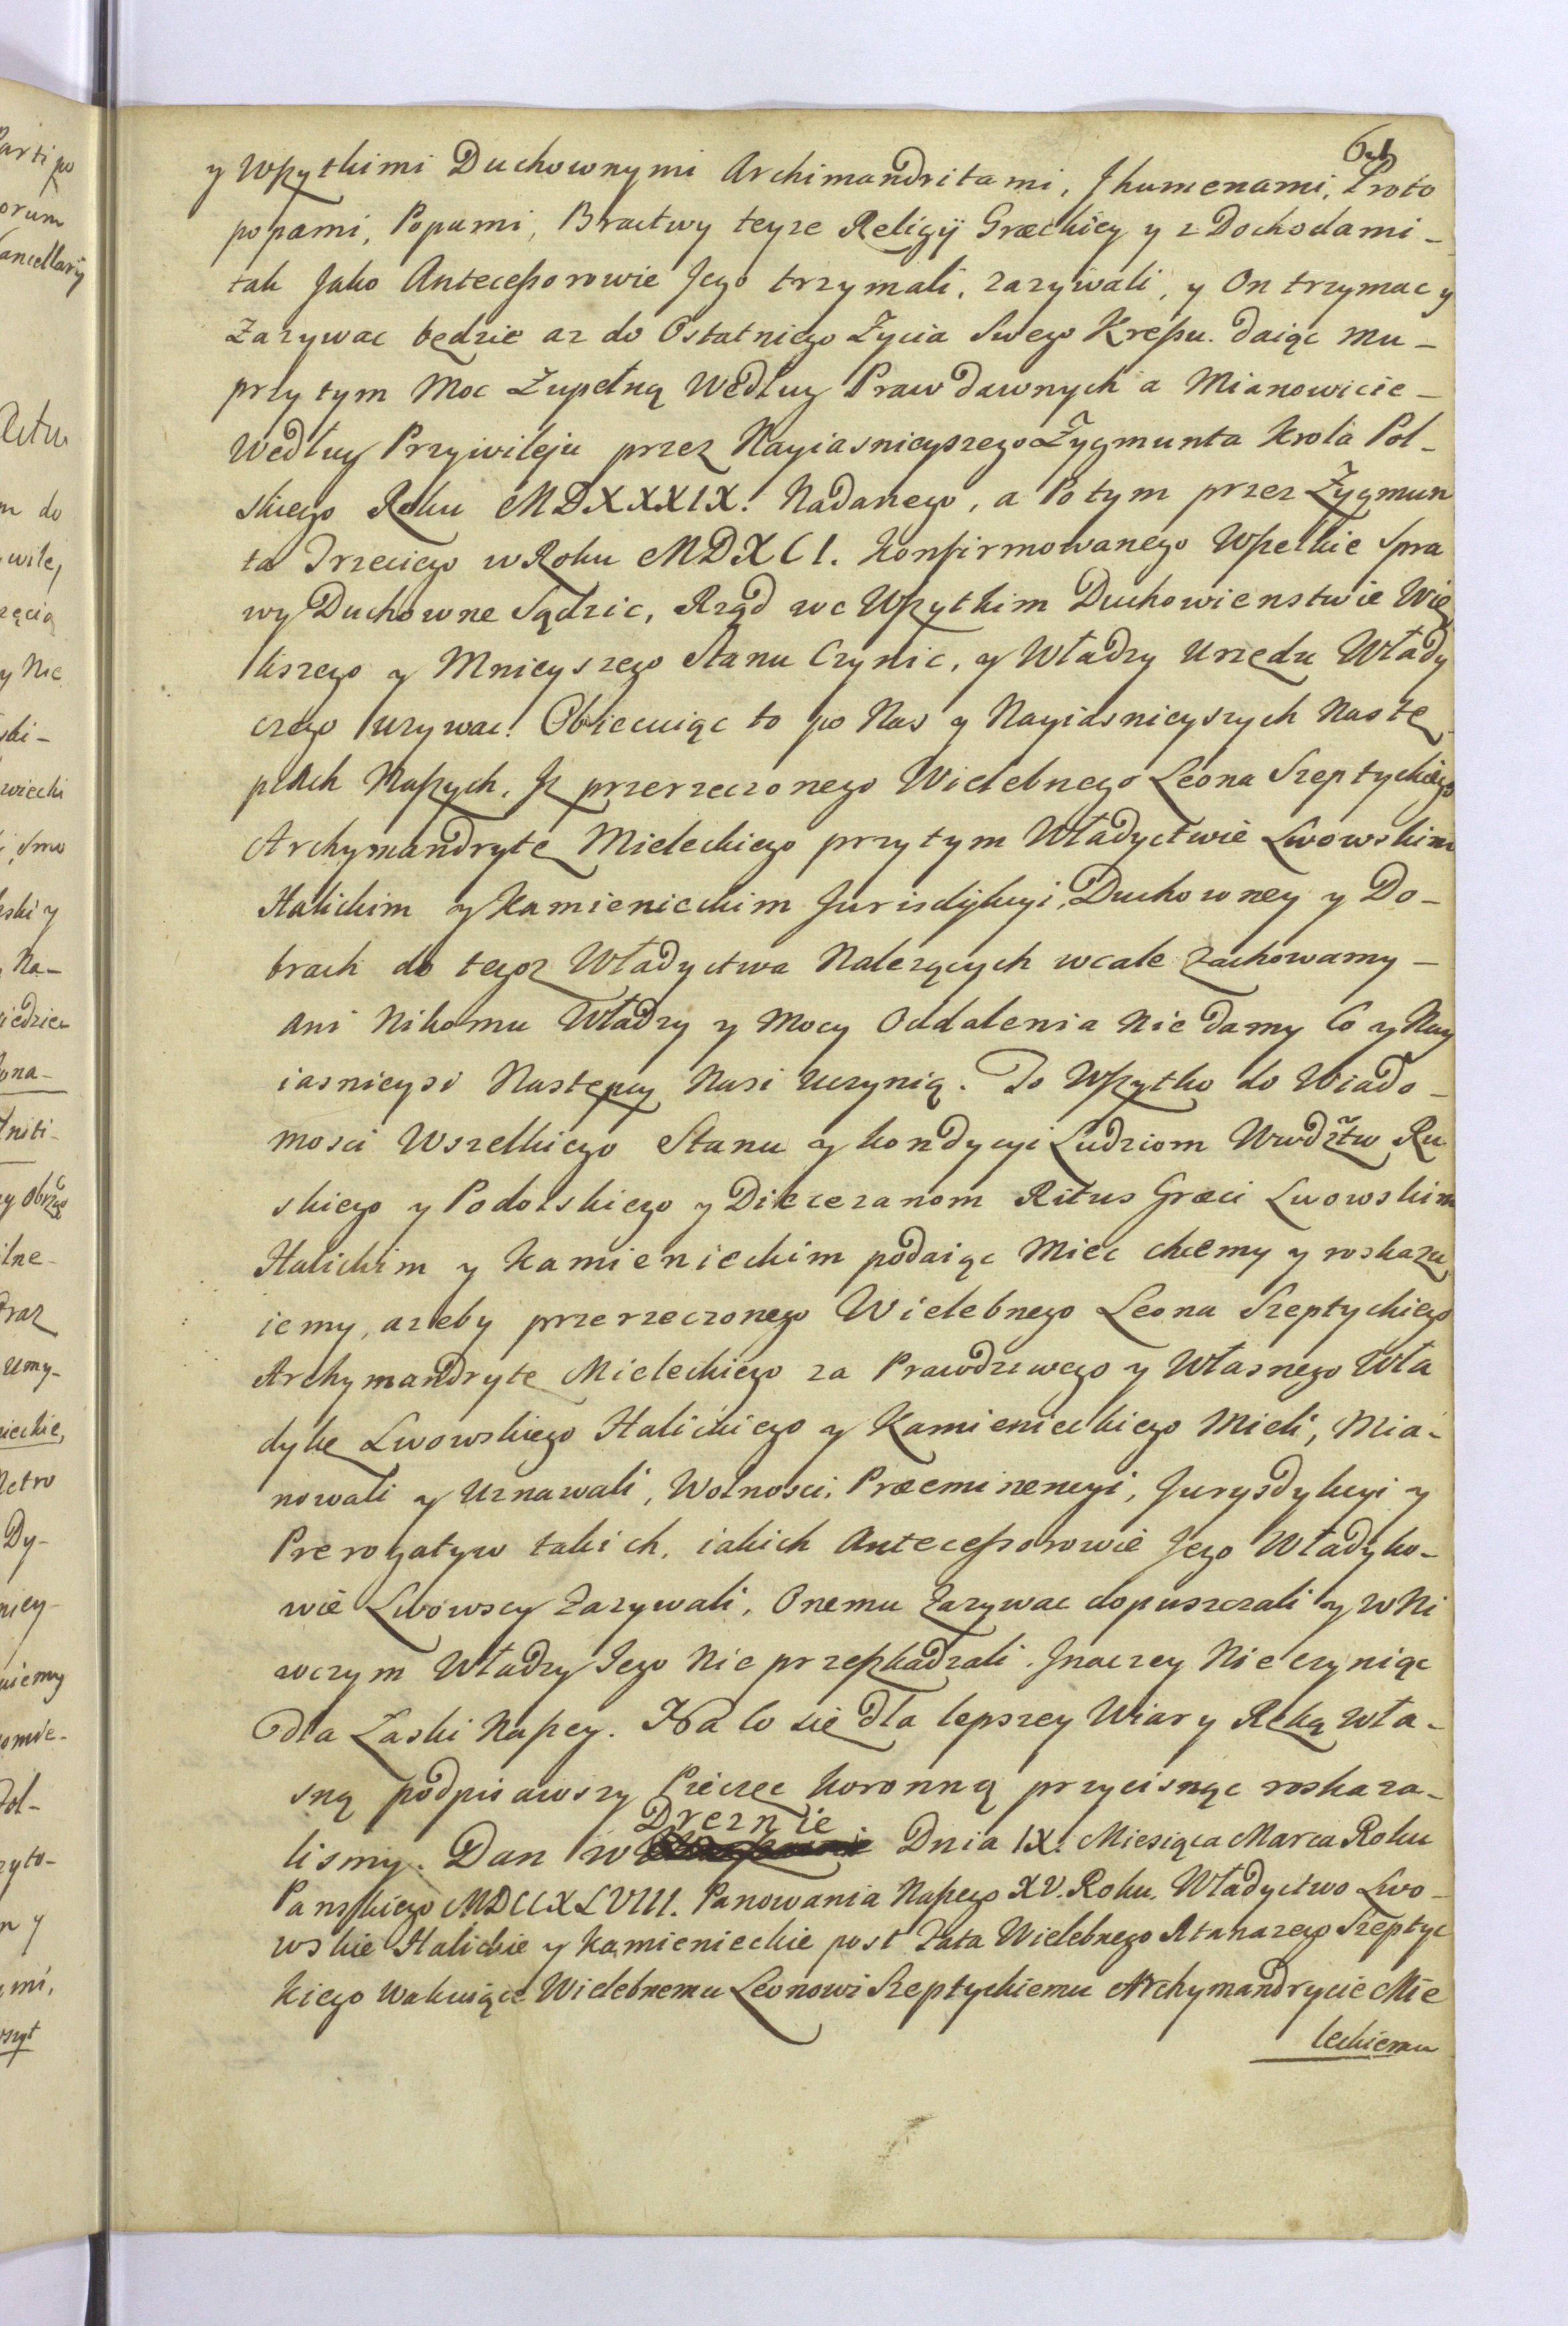 y Wszytkimi Duchownymi Archimandritami, Jhumenami, Proto
popami, Popami, Bractwy teyze Religÿ Græckiey y z Dochodami –
tak Jako Antecessorowie Jego trzymali, zazywali, y On trzymac y
Zazywac będzie az do Ostatniego Zycia Swego Kresu. daiąc mu –
przy tym Moc Zupełną Według Praw dawnych a Mianowicie –
Według Przywileju przez Nayiasnieyszego Zygmunta Krola Pol –
skiego Roku MDXXXIX. Nadanego, a Potym przez Zygmun
ta Trzeciego w Roku MDXCI. Konfirmowanego Wszelkie Spra
wy Duchowne Sądzic, Rząd we Wszytkim Duchowienstwie Wię
kszego y Mnieyszego Stanu Czynic, y Władzy Urzędu Włady
czego uzywac. Obiecuiąc to po Nas y Nayiasnieyszych Nastę
pcach Naszych, Jz przerzeczonego Wielebnego Leona Szeptyckiego
Archymandrytę Mieleckiego przy tym Władyctwie Lwowskim
Halickim y Kamienieckim Jurisdykcyi, Duchowney y Do –
brach do tegoz Władyctwa Nalezących wcale Zachowamy –
ani Nikomu Władzy y Mocy Oddalenia Nie damy Co y Nay
iasnieysi Następcy Nasi Uczynią. To Wszytko do Wiado –
mosci Wszelkiego Stanu y kondycyi Ludziom Wwdztw Ru
skiego y Podolskiego y Diecezanom Ritus Græci Lwowskim
Halickim y Kamienieckim podaiąc Miec chcemy y roskazu
iemy, azeby przerzeczonego Wielebnego Leona Szeptyckiego
Archymandrytę Mieleckiego za Prawdziwego y Własnego Wła
dykę Lwowskiego Halickiego y Kamienieckiego Mieli, Mia –
nowali y Uznawali, Wolnosci, Præeminencyi, Jurysdykcyi y
Prerogatyw takich, iakich Antecessorowie Jego Władyko –
wie Lwowscy Zazywali, Onemu Zazywac dopuszczali y w Ni
wczym Władzy Jego Nie przeszkadzali. Jnaczey Nie czyniąc
dla Łaski Naszey. Na Co się dla lepszey Wiary Ręką Wła –
sną podpisawszy Pieczęc Koronną przycisnąc roskaza –
lismy. Dan w Dreznie Dnia IX. Miesiąca Marca Roku
Panskiego MDCCXLVIII. Panowania Naszego XV. Roku. Władyctwo Lwo –
wskie Halickie y Kamienieckie post Fata Wielebnego Atanazego Szeptyc
kiego Wakuiące Wielebnemu Leonowi Szeptyckiemu Archymandrycie Mie
leckiemu